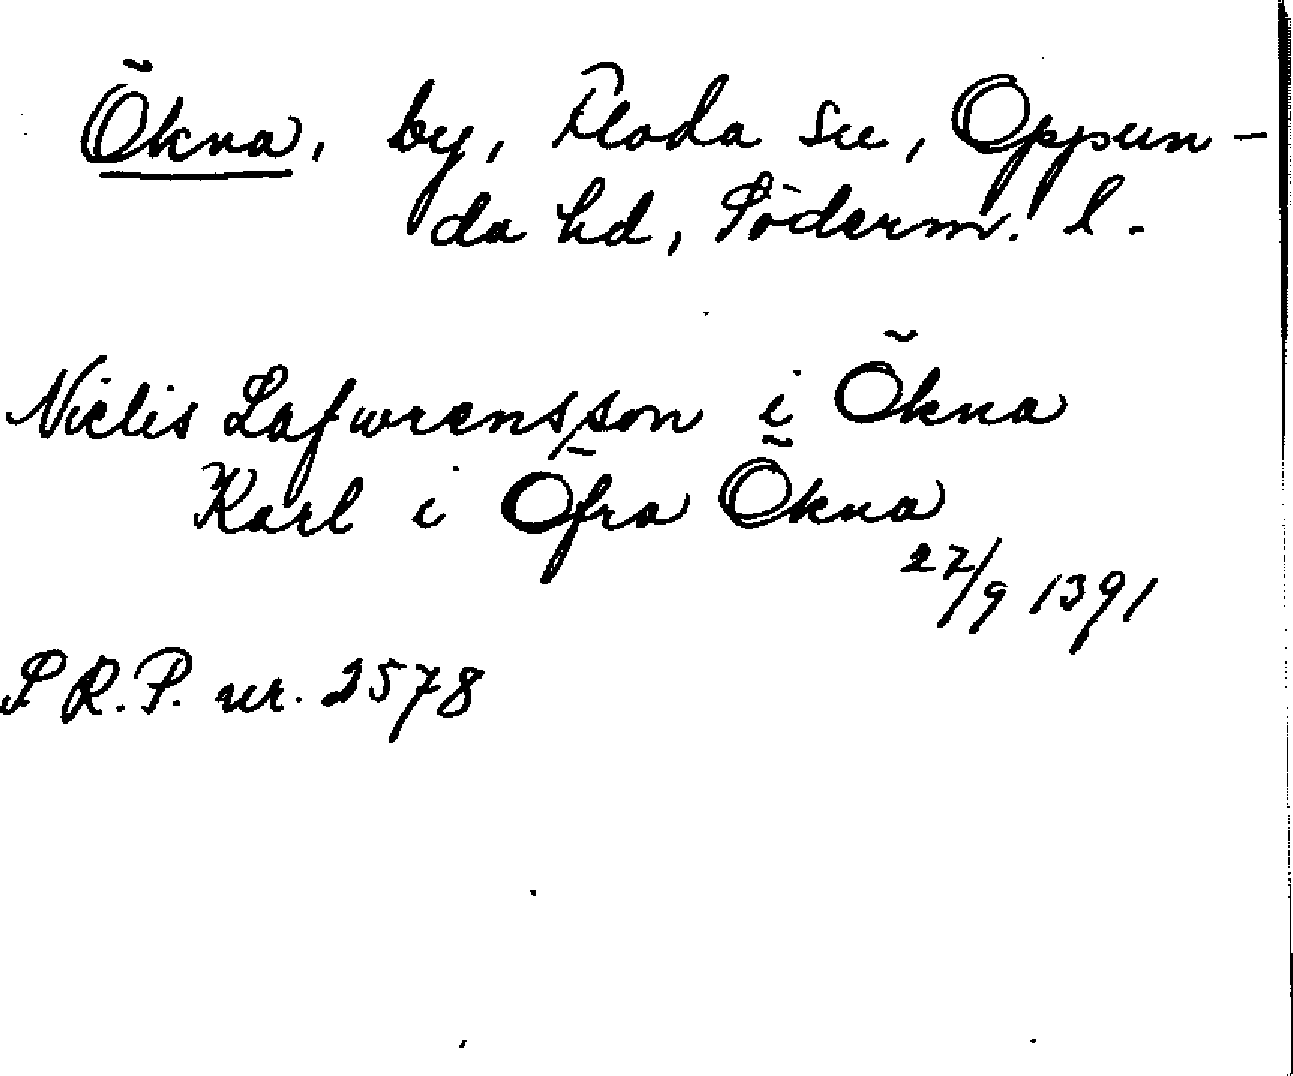 Ökna, by, Floda sn, Oppun-
da hd, Söderm. l.
Niclis Lafwrensson i Ökna
Karl i Öfra Ökna
27/9 1391
S R. P. nr. 2578